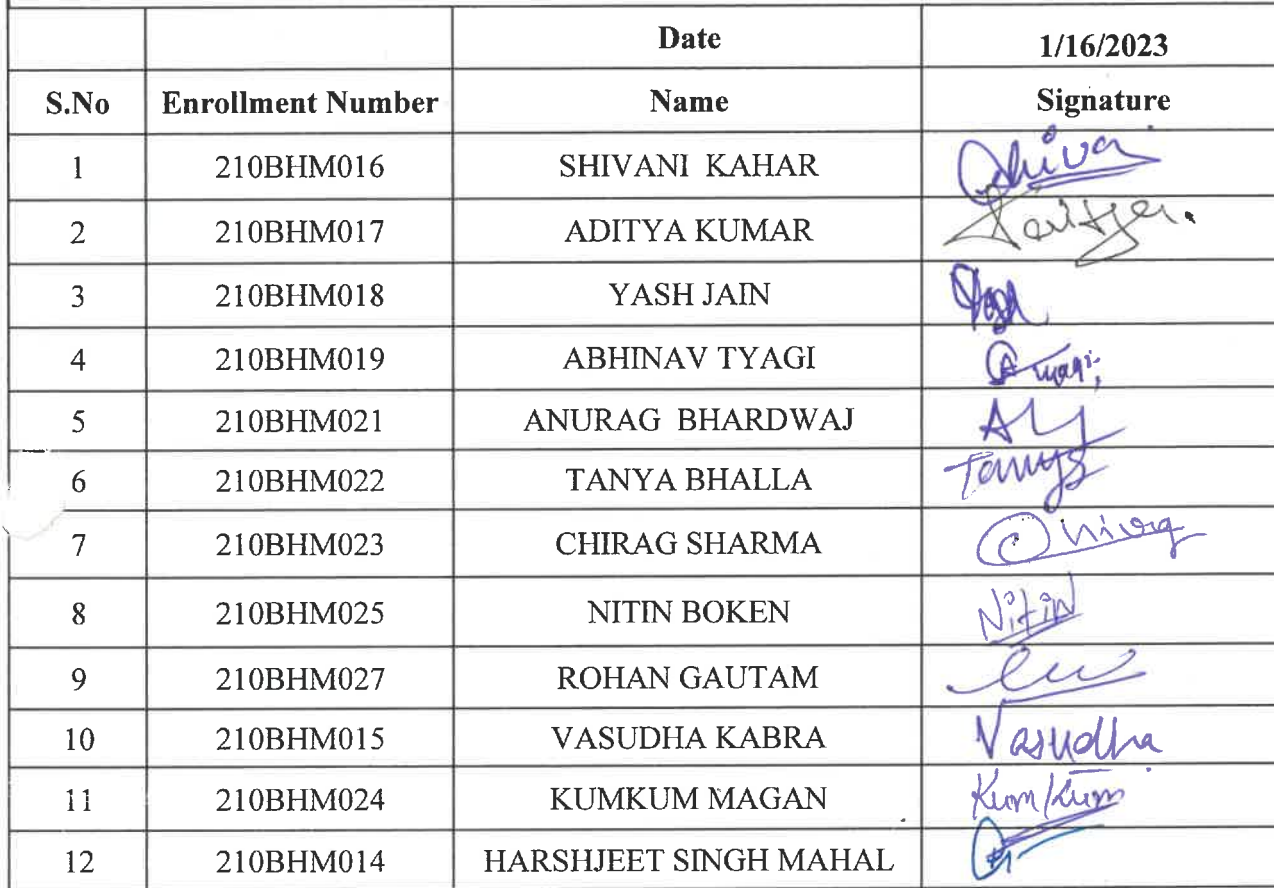 Date 1/16/2023
S.No Enrollment Number Name Signature
1 210BHM016 SHIVANI KAHAR Shiva
2 210BHM017 ADITYA KUMAR
3 210BHM018 YASH JAIN Yash
4 210BHM019 ABHINAV TYAGI Tyagi
5 210BHM021 ANURAG BHARDWAJ
6 210BHM022 TANYA BHALLA Tanya
7 210BHM023 CHIRAG SHARMA Chirag
8 210BHM025 NITIN BOKEN Nitin
9 210BHM027 ROHAN GAUTAM
10 210BHM015 VASUDHA KABRA Vasudha
11 210BHM024 KUMKUM MAGAN Kumkum
12 210BHM014 HARSHJEET SINGH MAHAL